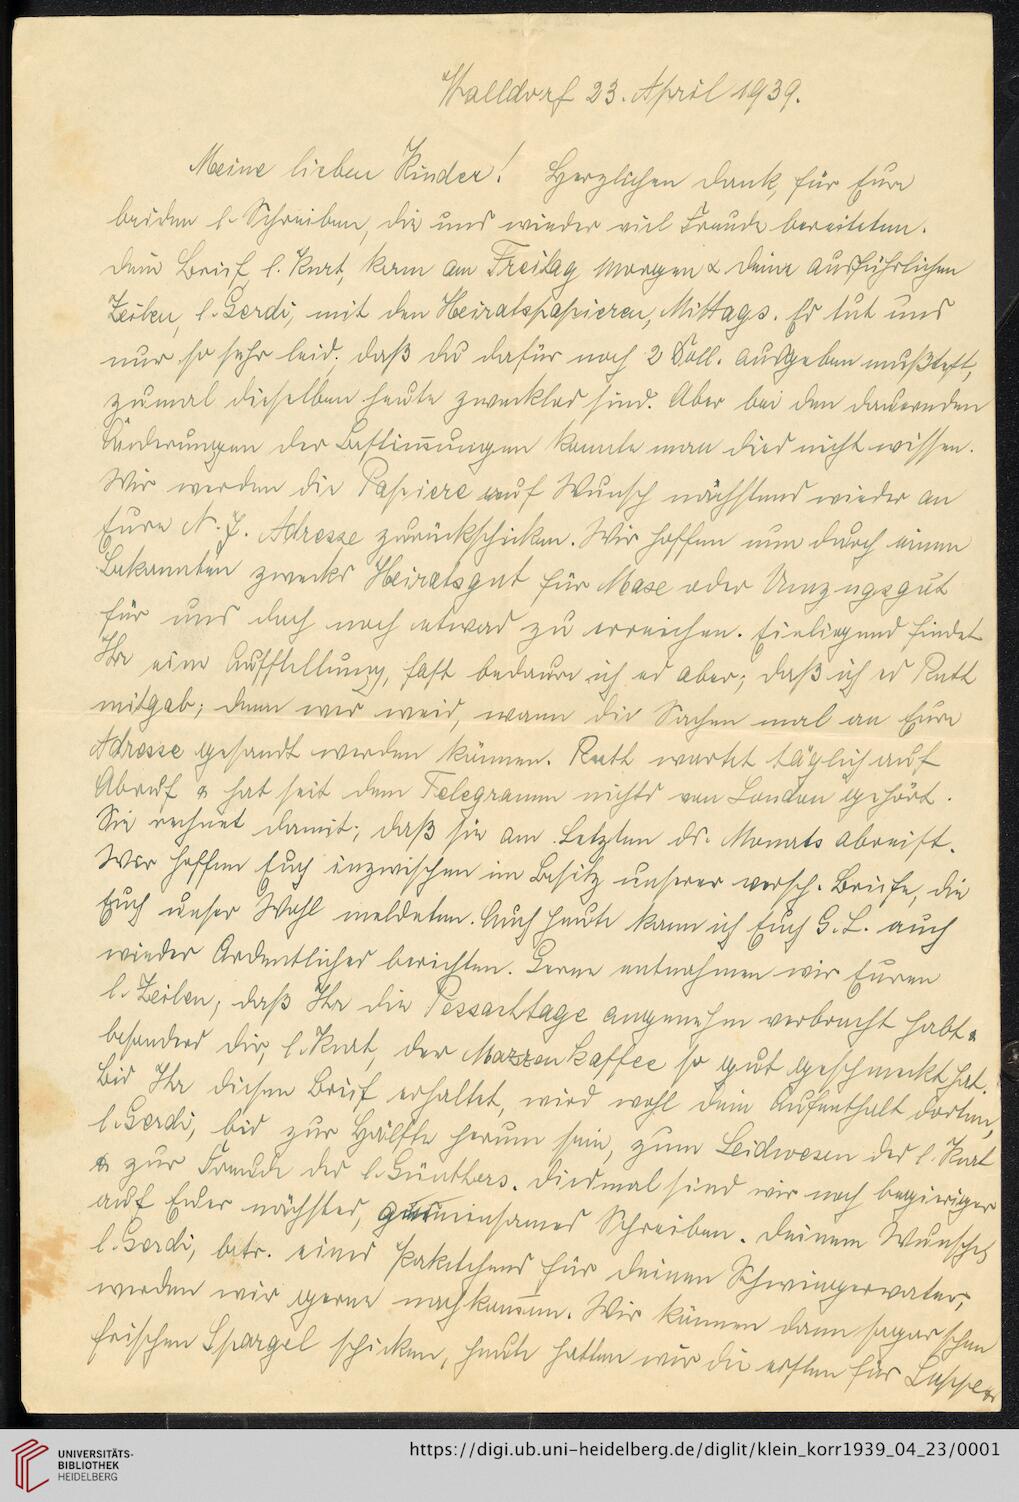 Walldorf 23. April 1939.
Meine lieben Kinder! Herzlichen Dank, für Eure
beiden l. Schreiben, die uns wieder viel Freude bereiteten.
Dein Brief l. Kurt, kam am Freitag Morgen & Deine ausführlichen
Zeilen, l. Gerdi, mit den Heiratspapieren, Mittags. Es tut uns
nur so sehr leid, daß du dafür noch 2 Doll. ausgeben mußtest,
zumal dieselben heute zwecklos sind. Aber bei den dauernden
Änderungen der Bestimmungen konnte man dies nicht wissen.
Wir werden die Papiere auf Wunsch nächstens wieder an
Eure N. J. Adresse zurückschicken. Wir hoffen nun durch einen
Bekannten zwecks Heiratsgut für Mase oder Umzugsgut
für uns doch noch etwas zu erreichen. Einliegend findet
Ihr eine Aufstellung, fast bedaure ich es aber, daß ich es Ruth
mitgab; denn wer weis, wann die Sachen mal an Eure
Adresse gesandt werden können. Ruth wartet täglich auf
Abruf & hat seit dem Telegramm nichts von London gehört.
Sie rechnet damit, daß sie am Letzten ds. Monats abreist.
Wir hoffen Euch inzwischen im Besitz unserer versch. Briefe, die
Euch unser Wohl meldeten. Auch heute kann ich Euch G. L. auch
wieder Ordentliches berichten. Gerne entnahmen wir Euren
l. Zeilen, daß Ihr die Pessachtage angenehm verbracht habt &
besonders dir, l. Kurt, der Mazzenkaffee so gut geschmeckt hat.
Bis Ihr diesen Brief erhaltet, wird wohl dein Aufenthalt dorten,
l. Gerdi, bis zur Hälfte herum sein, zum Leidwesen des l. Kurt
& zur Freude des l. Günthers. Diesmal sind wir noch begieriger
auf Euer nächstes, gemeinsames Schreiben. Deinem Wunsche,
l. Gerdi, betr. eines Paketchens für deinen Schwiegervater,
werden wir gerne nachkommen. Wir können dann sogar schon
frischen Spargel schicken, heute hatten wir die ersten für
UNIVERSITÄTS-
BIBLIOTHEK
HEIDELBERG
https://digi.ub.uni-heidelberg.de/diglit/klein_korr1939_04_23/0001